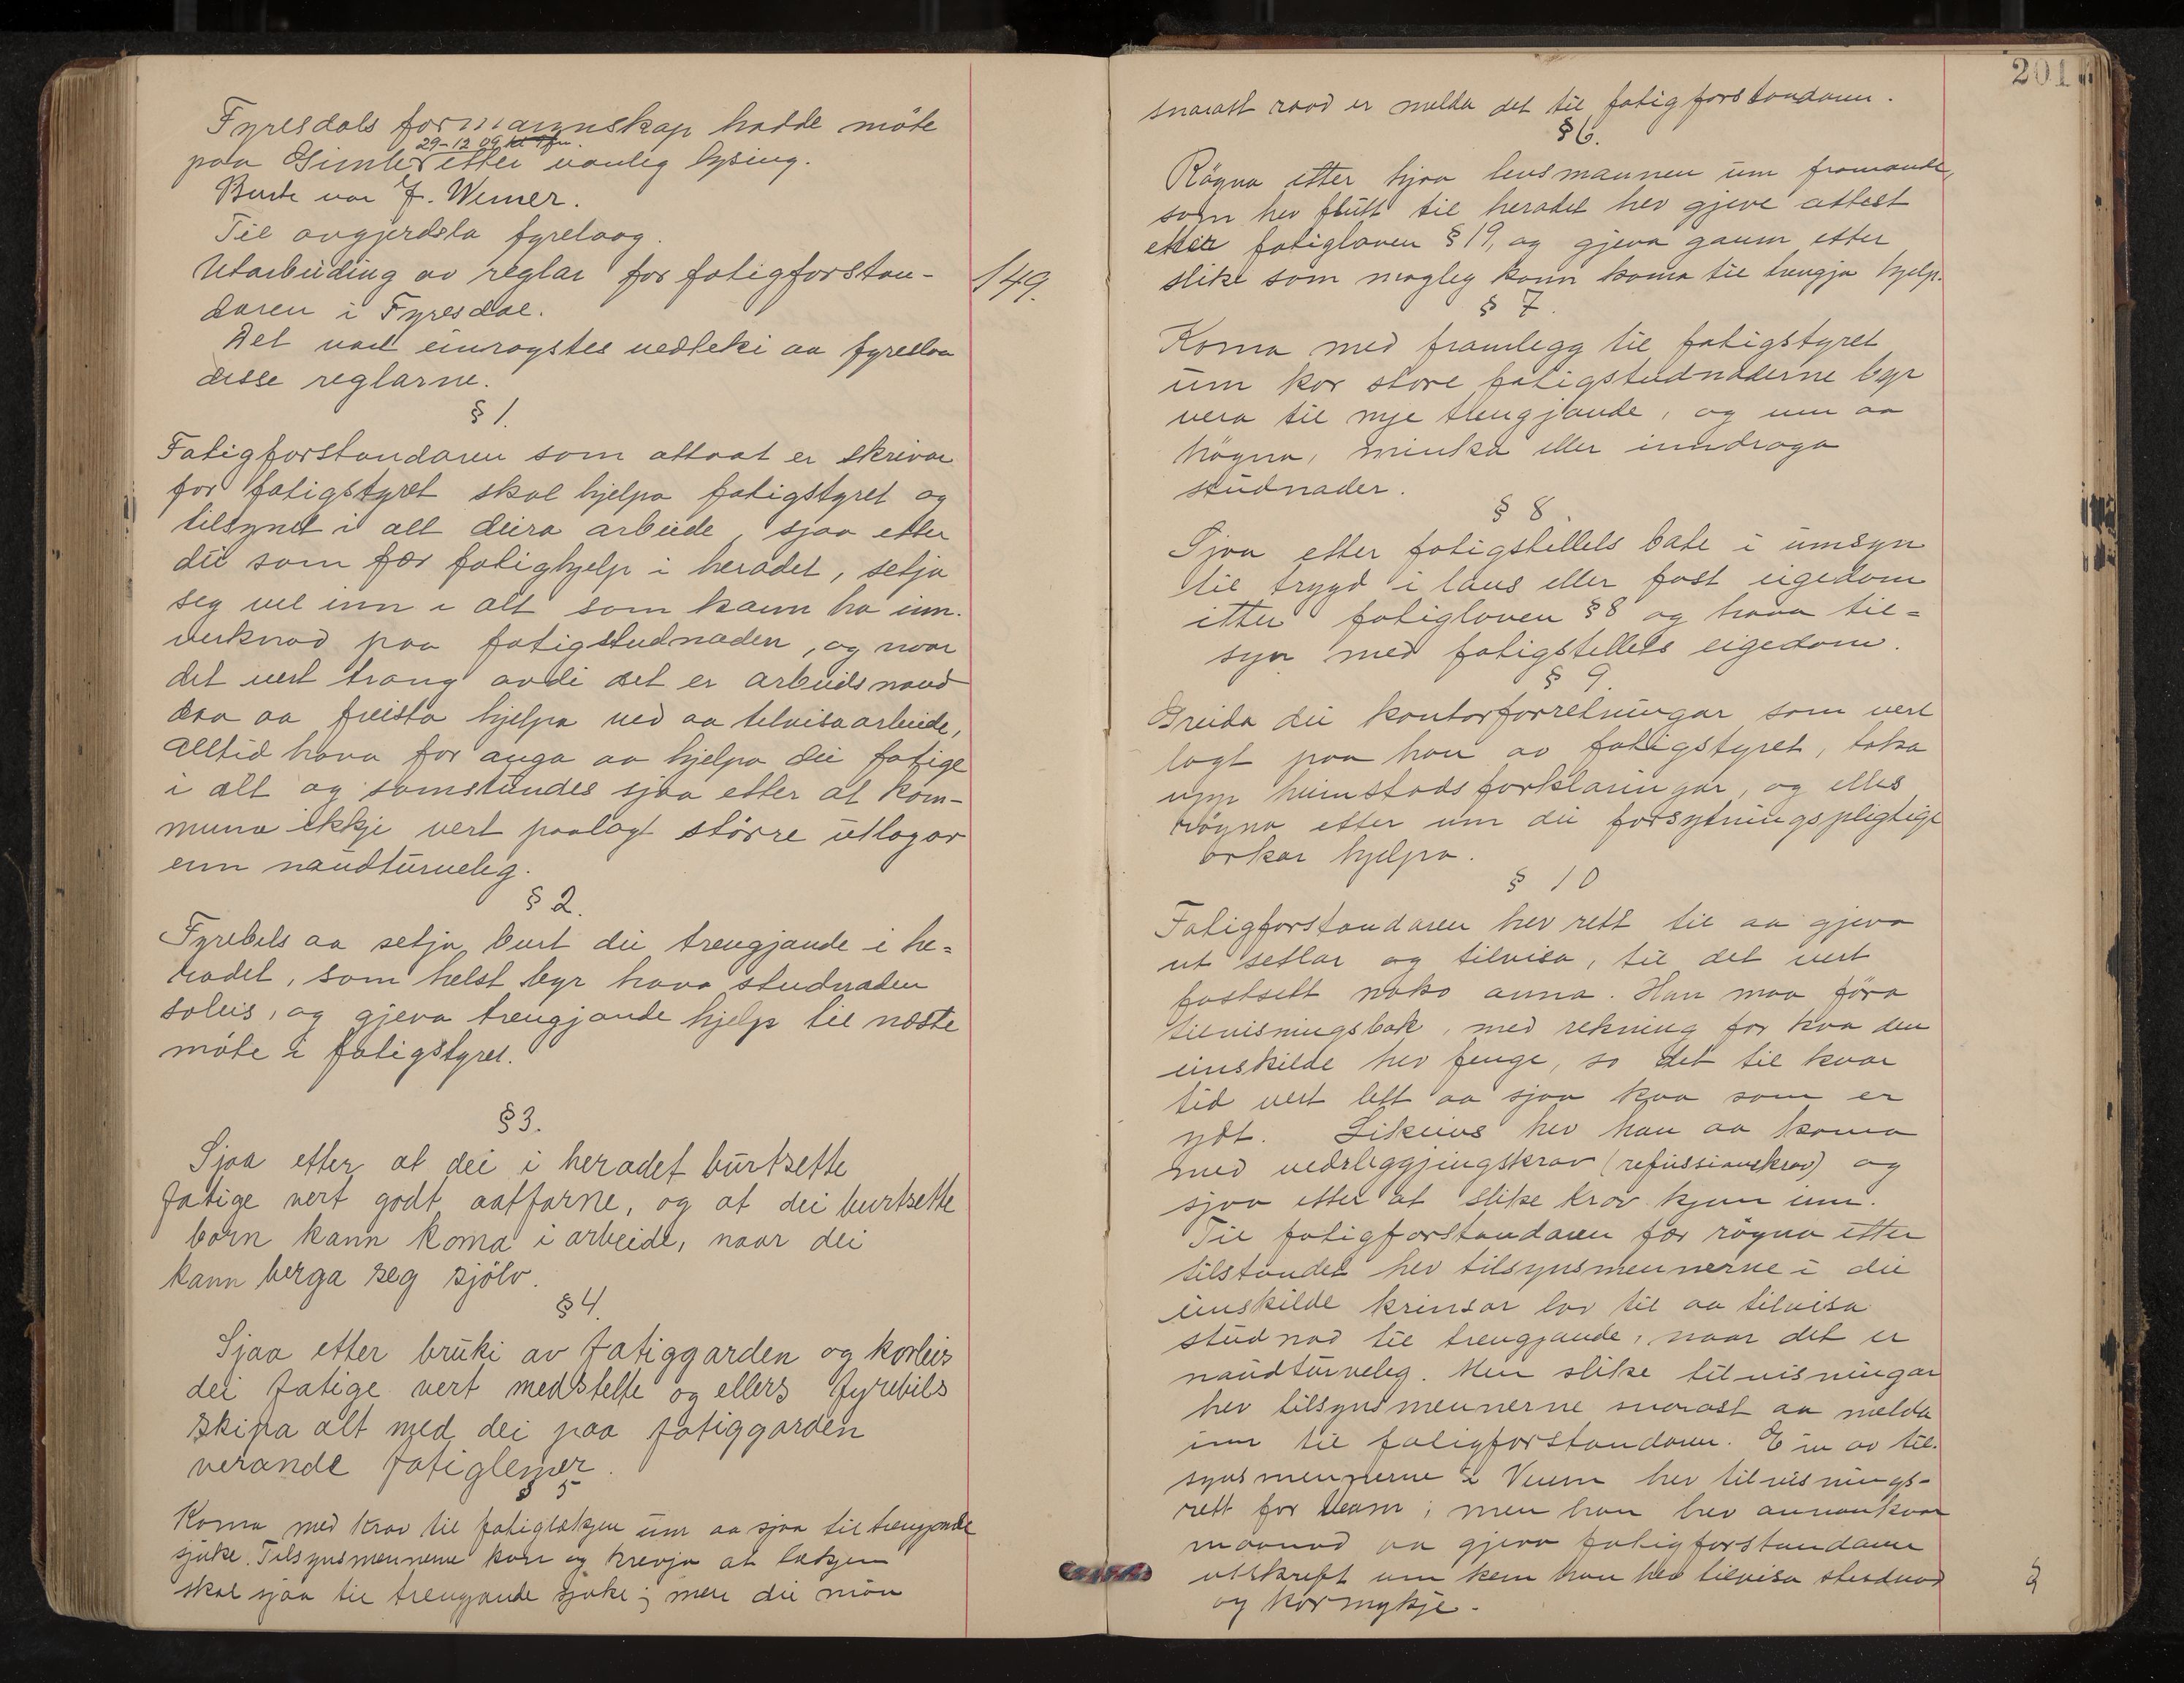 Fyresdals formannskap hadde möte
29-12 09 kl
paa Gimle etter vanleg lysing.
Burte var J. Weiner.
Til avgjerdsla fyrelaag.
Utarbeiding av reglar for fatigforstan-
149.
daren i Fyresdal.
Det vart einrøystes vedteki aa fyreslaa
disse reglarne.
§ 1.
Fatigforstandaren som attaat er skrivar
for fatigstyret skal hjelpa fatigstyret og
tilsynet i alt deira arbeide, sjaa etter
dei som fær fatighjelp i heradet, setja
seg vel inn i alt som kann ha inn-
verknad paa fatigstudnaden, og naar
det vert trong avdi det er arbeidsnaud
daa aa freista hjelpa ved aa tilvisa arbeide,
alltid hava for auga aa hjelpa dei fatige
i alt og samstundes sjaa etter at kom-
muna ikkje vert paalagt större utlogor
enn naudturveleg.
§ 2.
Fyrebels aa setja burt dei trengjande i he=
radet, som helst byr hava studnaden
soleis, og gjeva trengjande hjelp til næste
möte i fatigstyret.
§3.
Sjaa etter at dei i heradet burtsette
fatige vert godt aatfarne, og at dei burtsette
born kann koma i arbeide, naar dei
kann berga seg sjölv.
§4.
Sjaa etter bruki av fatiggarden og korleis
dei fatige vert medstelte og ellers fyrebils
skipa alt med dei paa fatiggarden
verande fatiglemer.
§ 5
Koma med krav til fatiglækjen um aa sjaa til trengjande
sjuke. Tilsynsmennerne kann og krevja at lækjen
skal sjaa til trengjande sjuke; men dei maa
201
snarast raad er melda det til fatigforstandaren.
§6.
Rögna etter hjaa lensmannen um framande,
som hev flutt til heradet hev gjeve attest
etter fatigloven §19, og gjeva gaum etter
slike som mogleg kann koma til trengja hjelp.
§ 7.
Koma med framlegg til fatigstyret
um kor store fatigstudnaderne byr
vera til nye trengjande, og um aa
högna, minka eller inndraga
studnader.
§ 8.
Sjaa etter fatigstellets bate i umsyn
til trygd i laus eller fast eigedom
etter fatigloven §8 og hava til=
syn med fatigstellets eigedom.
§ 9.
Greida dei kontorforretningar som vert
lagt paa han av fatigstyret, taka
upp heimstadsforklaringar, og elles
rögna etter um dei forsytningspligtige
orkar hjelpa.
§ 10
Fatigforstandaren hev rett til aa gjeva
ut setlar og tilvisa, til det vert
fastsett noko anna. Han maa föra
tilvisningsbok, med rekning for kva den
einskilde hev fenge, so det til kvar
tid vert lett aa sjaa kva som er
ydt. Likeins hev han aa koma
med vedrleggjingskrav (refusionskrav) og
sjaa etter at slike krav kjem inn.
Til fatigforstandaren fær rögna etter
tilstandet hev tilsynsmennerne i dei
einskilde krinsar lov til aa tilvisa
studnad til trengjande, naar det er
naudturveleg. Men slike tilvisningar
hev tilsynsmennerne snarast aa melda
inn til fatigforstandaren. Ein av til-
synsmennerne i Veum hev tilvisnings-
rett for Veum; men han hev annankvar
maanad aa gjeva fatigforstandaren
utskrift um kem han hev tilvisa studnad
og kor mykje.